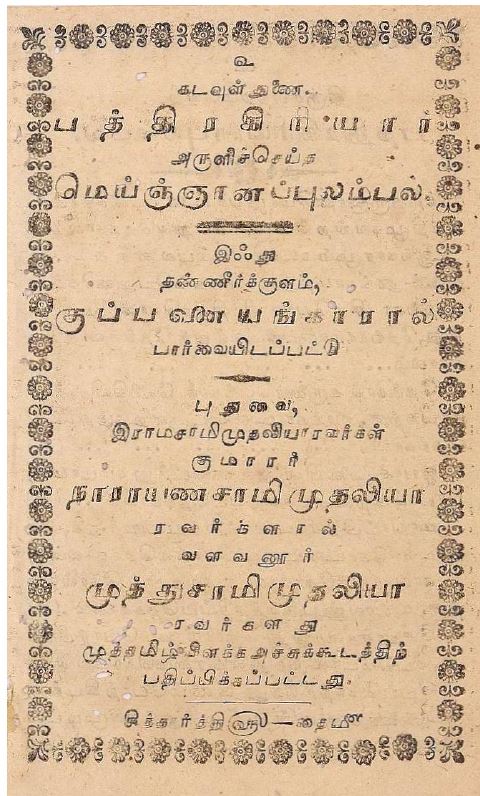 உ
கடவுள் துணை.
பத்திரகிரியார்
அருளிச்செய்த
மெய்ஞ்ஞானப்புலம்பல்.
இஃது
தண்ணீர்க்குளம்,
குப்பையங்காரால்
பார்வையிடப்பட்டு
புதுவை,
இராமசாமிமுதலியாரவர்கள்
குமாரர்
நாராயணசாமிமுதலியா
ரவர்களால்
வளவனூர்
முத்துசாமிமுதலியா
ரவர்களது
முத்தமிழ்விளக்கஅச்சுக்கூடத்திற்
பதிப்பிக்கப்பட்டது.
சித்தார்த்தி௵—தைமீ